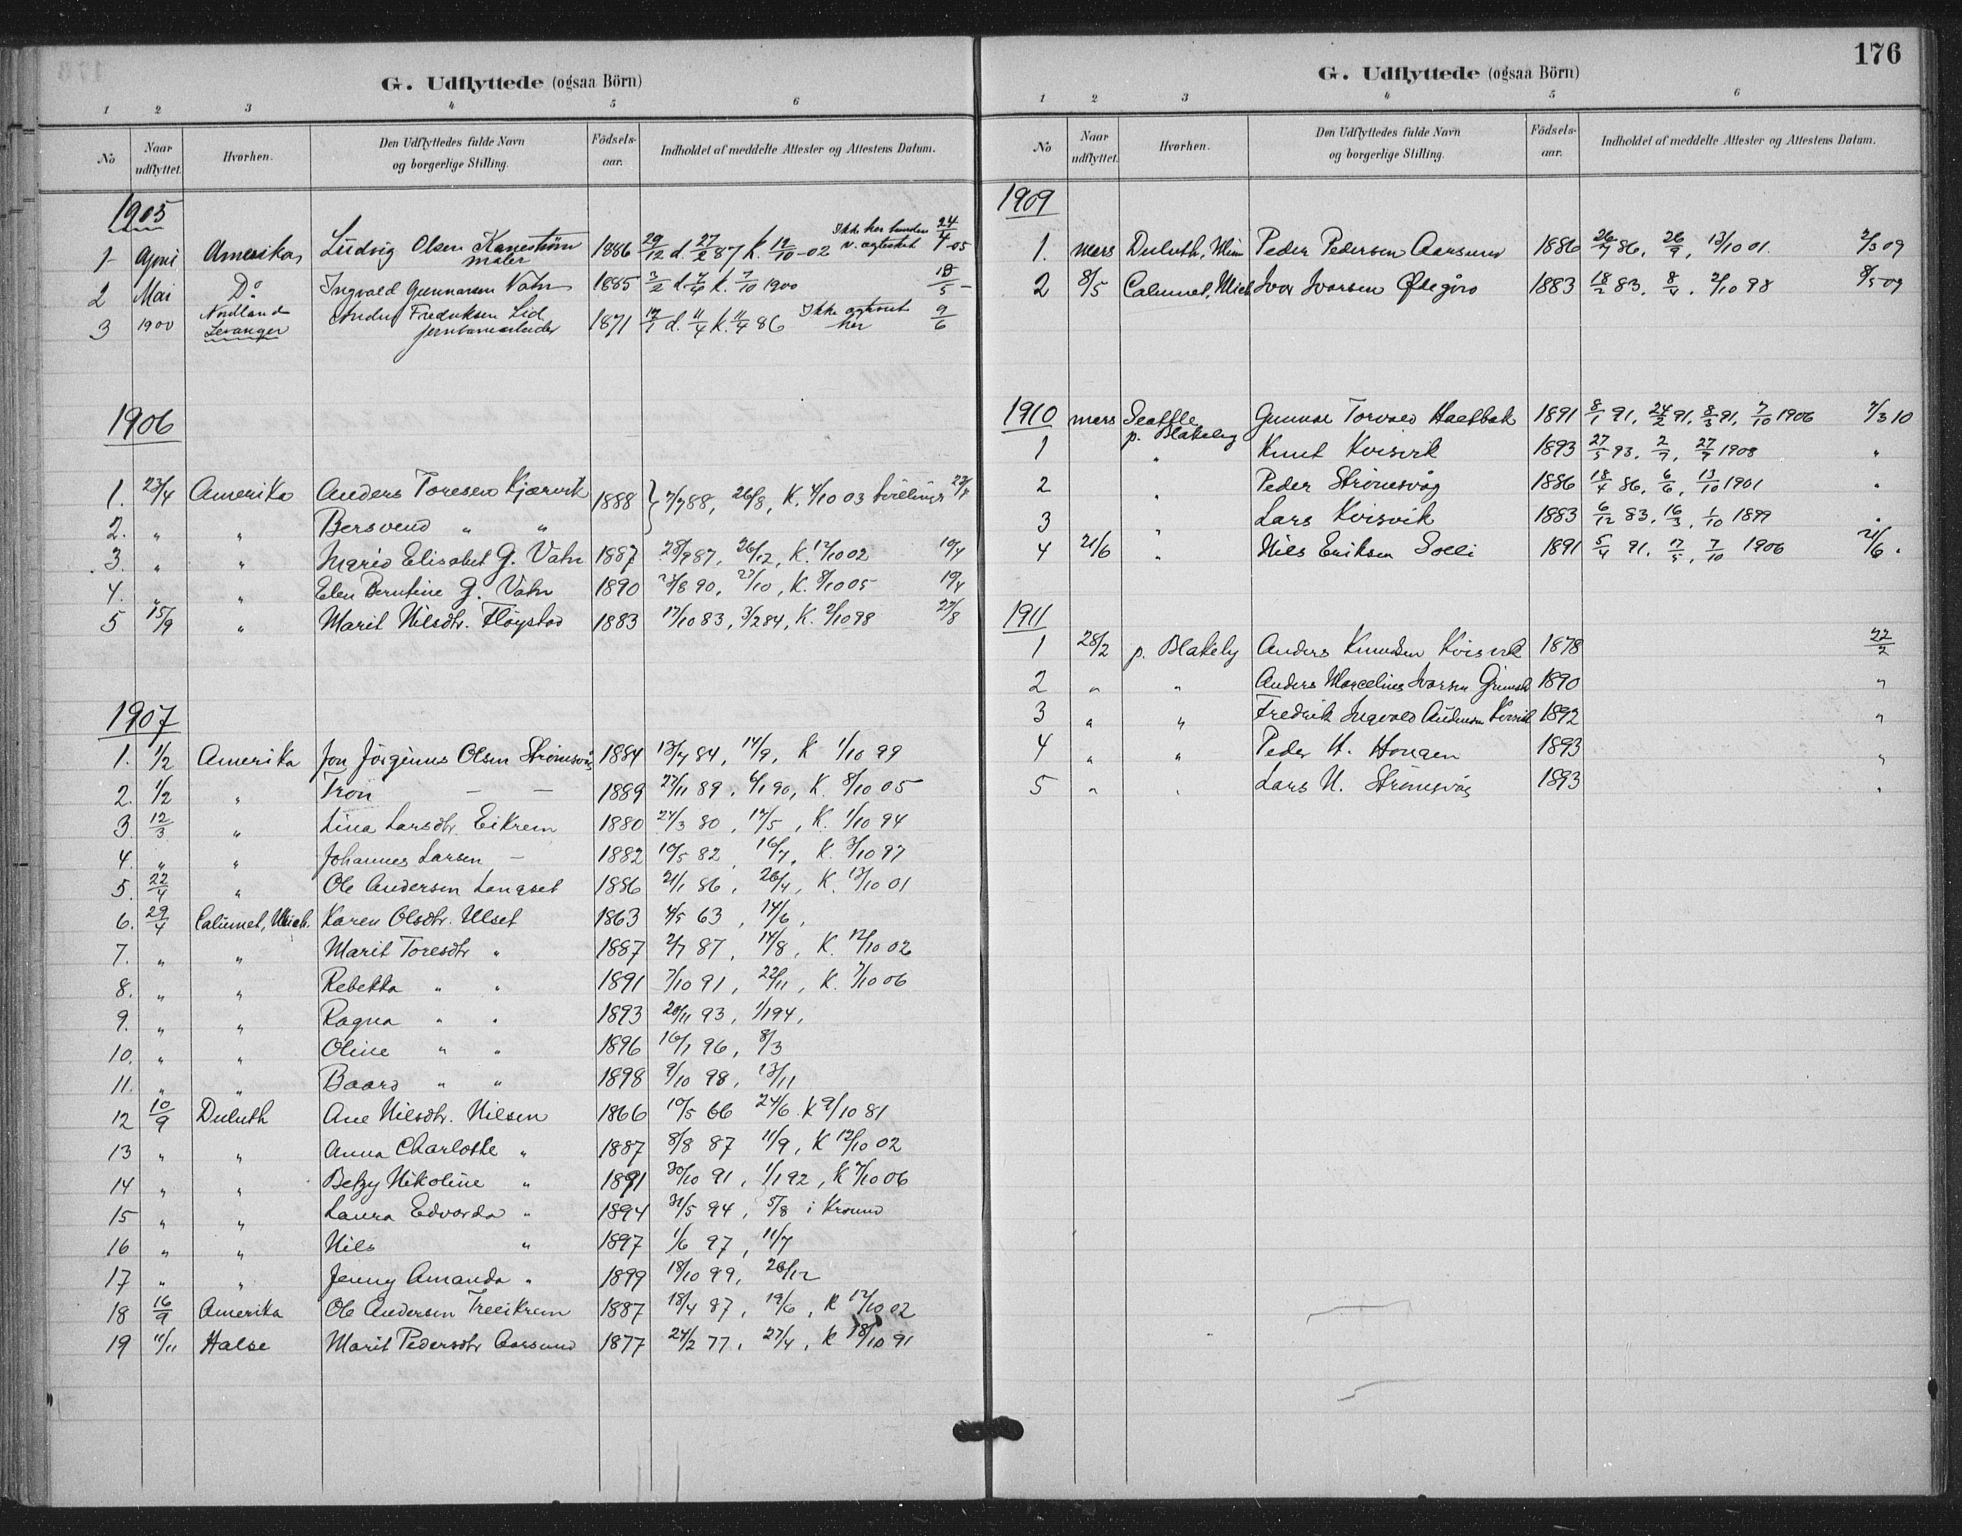 G. Udflyttede (ogsaa Börn)
1 2 3 4 5 6
No Naar udflyttet. Hvorhen. Den Udflyttedes fulde Navn og borgerlige Stilling. Födsels-aar. Indholdet af meddelte Attester og Attestens Datum.
1905
1 April Amerika Ludvig Olsen Kanestrøm maler 1886 29/12 d. 27/2 87 k. 12/10-02 Ikke her bunden v. ægteskab 24/4-05
2 Mai Do Ingvald Gunnarsen Vatn 1885 k. 7/10 1900 18/5 -
3 1900 Nordland Levanger Fredriksen Lid jernbanearbeider 1871 d. 11/4 k. 11/9 86 Ikke her 9/6
1906
1. 23/4 Amerika Anders Toresen Kjørvik 1888 7/7 88, 26/8, K. 4/10 03 tvillinger 23/4
2. " " Bersvend " "
3. " " Marie Elisabet G. Vatn 1887 28/9 87, 26/12, K. 12/10 02 19/4
4. " " Elen Berntine G. Vatn 1890 23/8 90, 27/10, K. 8/10 05 19/4
5 15/9 " Marit Nilsdtr. Fløystad 1883 17/10 83, 3/2 84, K. 2/10 98 27/8
1907
1. 1/2 Amerika Jon Jørginus Olsen Strømsvåg 1884 13/7 84, 14/9, K 1/10 99
2. 1/2 " Tron — — 1889 27/11 89, 6/1 90, K. 8/10 05
3. 12/3 " Lina Larsdtr. Eikrem 1880 24/3 80, 17/5, K. 1/10 94
4. " " Johannes Larsen — 1882 19/5 82, 16/7, K. 3/10 97
5. 22/4 " Ole Andersen Langset 1886 21/1 86, 26/4, K. 13/10 01
6. 29/4 Calumet, Mich. Karen Olsdtr. Ulset 1863 4/5 63, 14/6,
7. " " Marit Toresdtr " 1887 2/7 87, 14/8, K. 12/10 02
8. " " Rebekka " " 1891 7/10 91, 22/11, K. 7/10 06
9. " " Ragna " " 1893 26/11 93, 1/1 94,
10. " " Oline " " 1896 16/1 96, 8/3
11. " " Baard " " 1898 9/10 98, 13/11
12 10/9 Duluth Ane Nilsdtr. Nilsen 1866 10/5 66 24/6. K 9/10 81
13 " " Anna Charlotte " 1887 8/8 87 11/9, K 12/10 02
14 " " Betzy Nikoline " 1891 30/10 91, 1/1 92, K 7/10 06
15 " " Laura Edvarda " 1894 31/5 94, 5/8 i Krsund
16 " " Nils " 1897 1/6 97, 11/7
17 " " Jenny Amanda " 1899 18/10 99, 26/12
18 16/9 Amerika Ole Andersen Treeikrem 1887 18/4 87, 19/6, K 12/10 02
19 11/11 Halse Marit Pedersdtr Aarsund 1877 24/2 77, 27/4, K 18/10 91
176
G. Udflyttede (ogsaa Börn)
1 2 3 4 5 6
No Naar udflyttet. Hvorhen. Den Udflyttedes fulde Navn og borgerlige Stilling. Födsels-aar. Indholdet af meddelte Attester og Attestens Datum.
1909
1. mars Duluth, Minn Peder Pedersen Aarsund 1886 26/7 86, 26/9, 13/10 01. 2/3 09
2 8/5 Calumet, Mich Ivar Ivarsen 1883 18/2 83, 8/4, 2/10 98 8/5 09
1910 mars Seattle Gunnar Torvald 1891 8/1 91, 24/2 91, 8/3 91, 7/10 1906 7/3 10
1 p. Blakely " Knut Kvisvik 1893 27/5 93, 2/7, 27/9 1908 "
2 " Peder Strømsvåg 1886 18/4 86, 6/6, 13/10 1901 "
3 " Lars Kvisvik 1883 6/12 83, 16/3, 1/10 1899 "
4 21/6 " Nils Eriksen Solli 1891 5/4 91, 17/5, 7/10 1906 21/6.
1911
1 28/2 p. Blakely Anders Knudsen Kvisvik 1878 22/2
2 " " Anders Marcelius Ivarsen 1890 "
3 " " Fredrik Ingvald Andersen Kvisvik 1892 "
4 " " Peder H. Hougen 1893 "
5 " " Lars N. Strømsvåg 1893 "